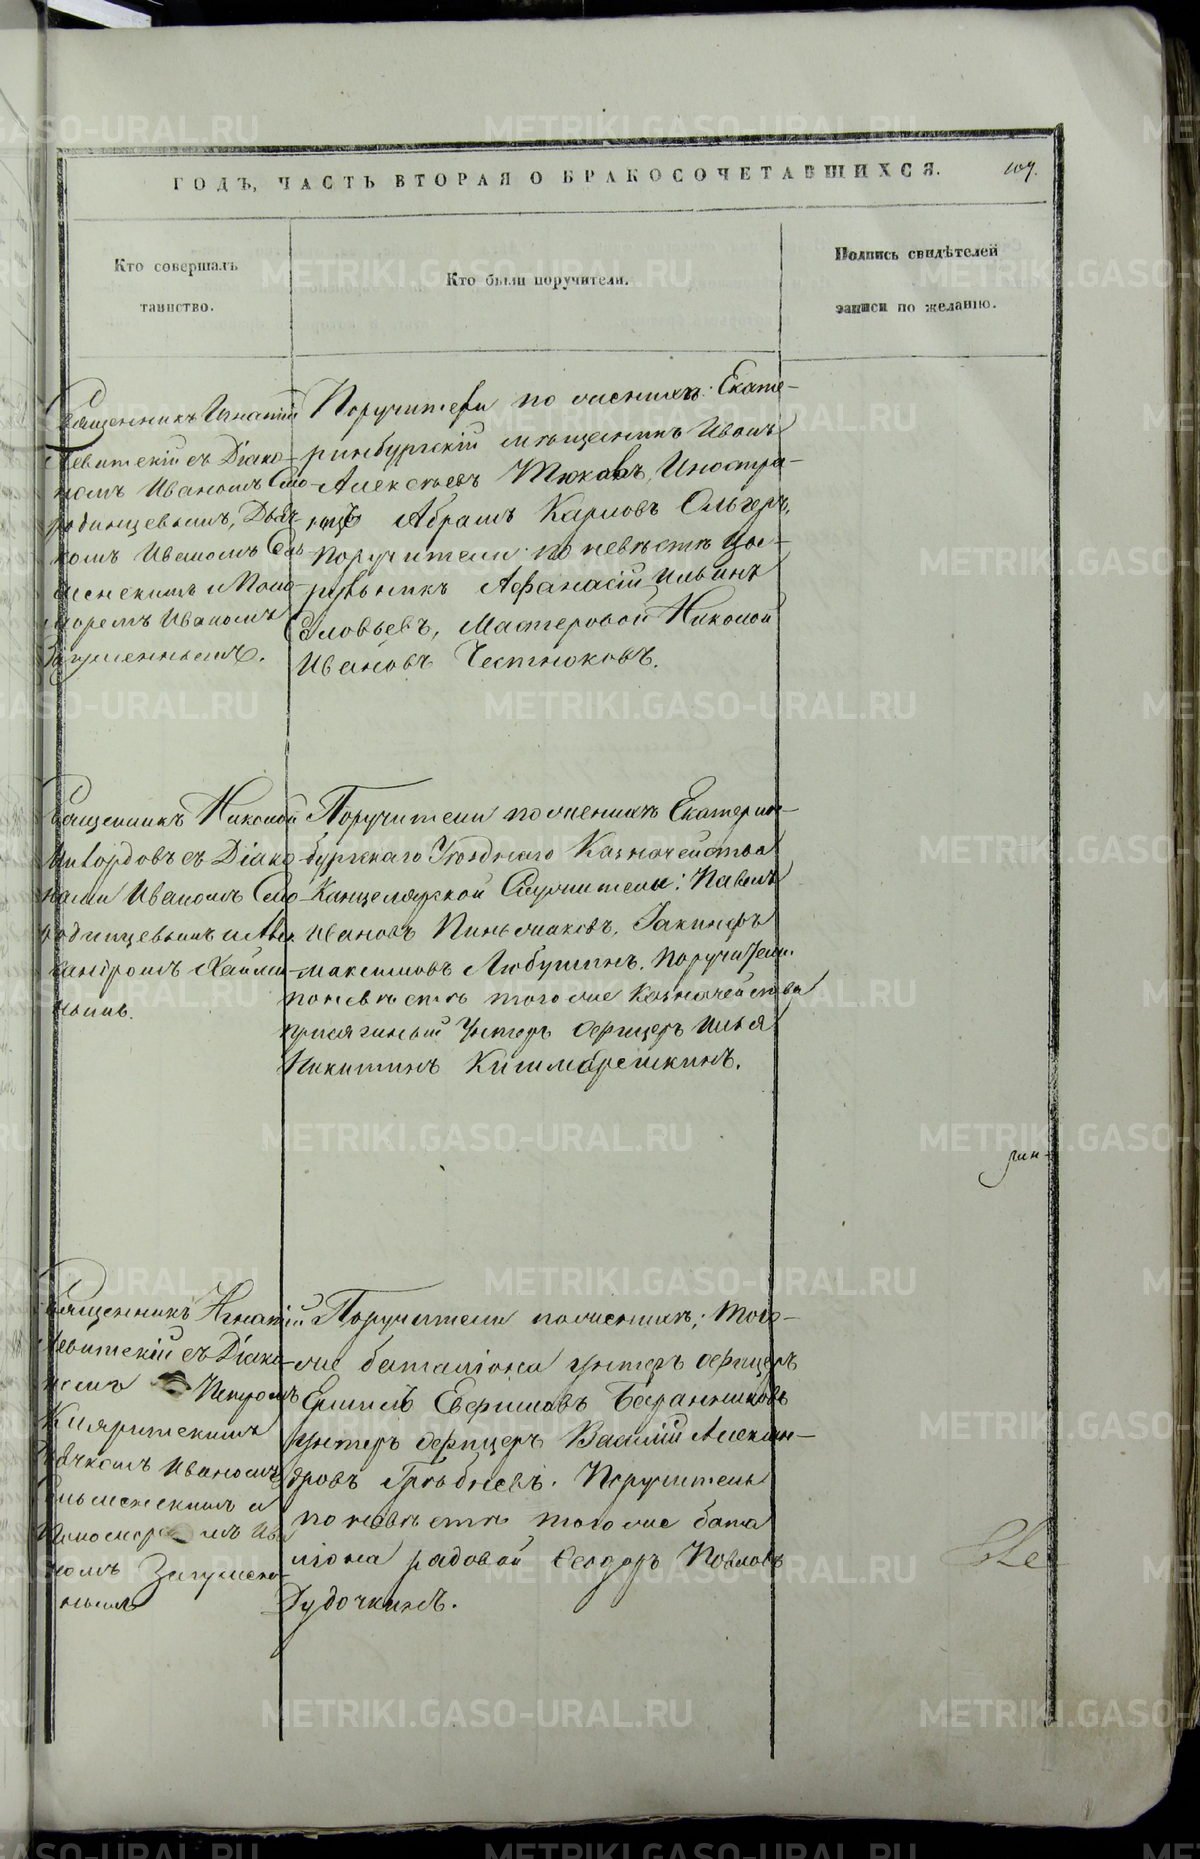 ГОДЪ, ЧАСТЬ ВТОРАЯ О БРАКОСОЧЕТАВШИХСЯ.
Кто совершалъ
таинство.
Кто были поручители.
Подпись свидѣтелей
записи по желанію.
Священникъ Игнатій
Левитскій съ Діако-
номъ Иваномъ Смо-
родинцевымъ, Дьяч-
комъ Иваномъ
и Поно-
маремъ Иваномъ
Загуменнымъ.
Поручители по женихѣ: Екате-
ринбургскій мѣщанинъ Иванъ
Алексѣевъ Тюковъ, Иностра-
нецъ Абрамъ Карловъ
Поручители по невѣстѣ
Афанасій Ильинъ
Соловьевъ, Мастеровой Николай
Ивановъ Честнюковъ.
Священникъ Николай
съ Діако-
нами Иваномъ Смо-
родинцевымъ и Алек
сандромъ
Поручители по женихѣ Екатерин-
бургскаго Уѣзднаго Казначейства
Канцелярской Служители: Павелъ
Ивановъ Пиньжаковъ, Іакинфъ
Максимовъ Любушинъ. Поручители
по невѣстѣ того же Казначейства
присяжный Унтеръ Офицеръ Илья
Никитинъ
Священникъ Игнатій
Левитскій съ Діако-
номъ Петромъ
Дьячкомъ Иваномъ
и
Пономаремъ Ива
номъ Загумен-
нымъ
Поручители по женихѣ; того-
же баталіона унтеръ офицеръ
Евфимовъ Баранниковъ
унтеръ офицеръ Василій Алексан-
дровъ Грѣбневъ. Поручитель
по невѣстѣ того же бата
ліона рядовой Ѳеодоръ Павловъ
Дудочкинъ.
METRIKI.GASO-URAL.RU